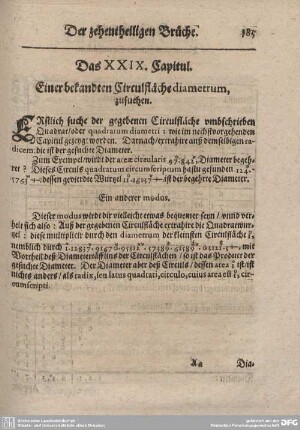 Der zehentheiligen Brüche. 185
Das XXIX. Capitul.
Einer bekandten Circulfläche diametrum,
zusuchen.
ERstlich suche der gegebenen Circulfläche vmbschrieben
Quadrat/oder quadratum diametri : wie im nechstvorgehenden
Capitul gezeigt worden. Darnach/extrahire auß demselbigen ra-
dicem die ist der gesuchte Diameter.
Zum Exempel/wirdt der aream circularis Diameter begeh-
ret? Dieses Circuls quadratum circumscriptum hastu gefunden
dessen gevierdte Wurtzel ist der begehrte Diameter.
Ein anderer modus.
Dieser modus wirdt dir vielleicht etwas bequemer seyn/ vnnd ver-
helt sich also: Auß der gegebenen Circulfläche extrahir die Quadratwur-
tzel: diese multiplicir durch den diametrum der kleinsten Circulfläche
nemblich durch mit
Vortheil deß Diametertäfflins der Circulflächen/ so ist das Product der
gesuchte Diameter. Der Diameter aber deß Circuls/ dessen area ist/ist
nichts anders/ als radix, seu latus quadrati, circulo, cuius area est cir-
cumscripti.
Aa Dia-